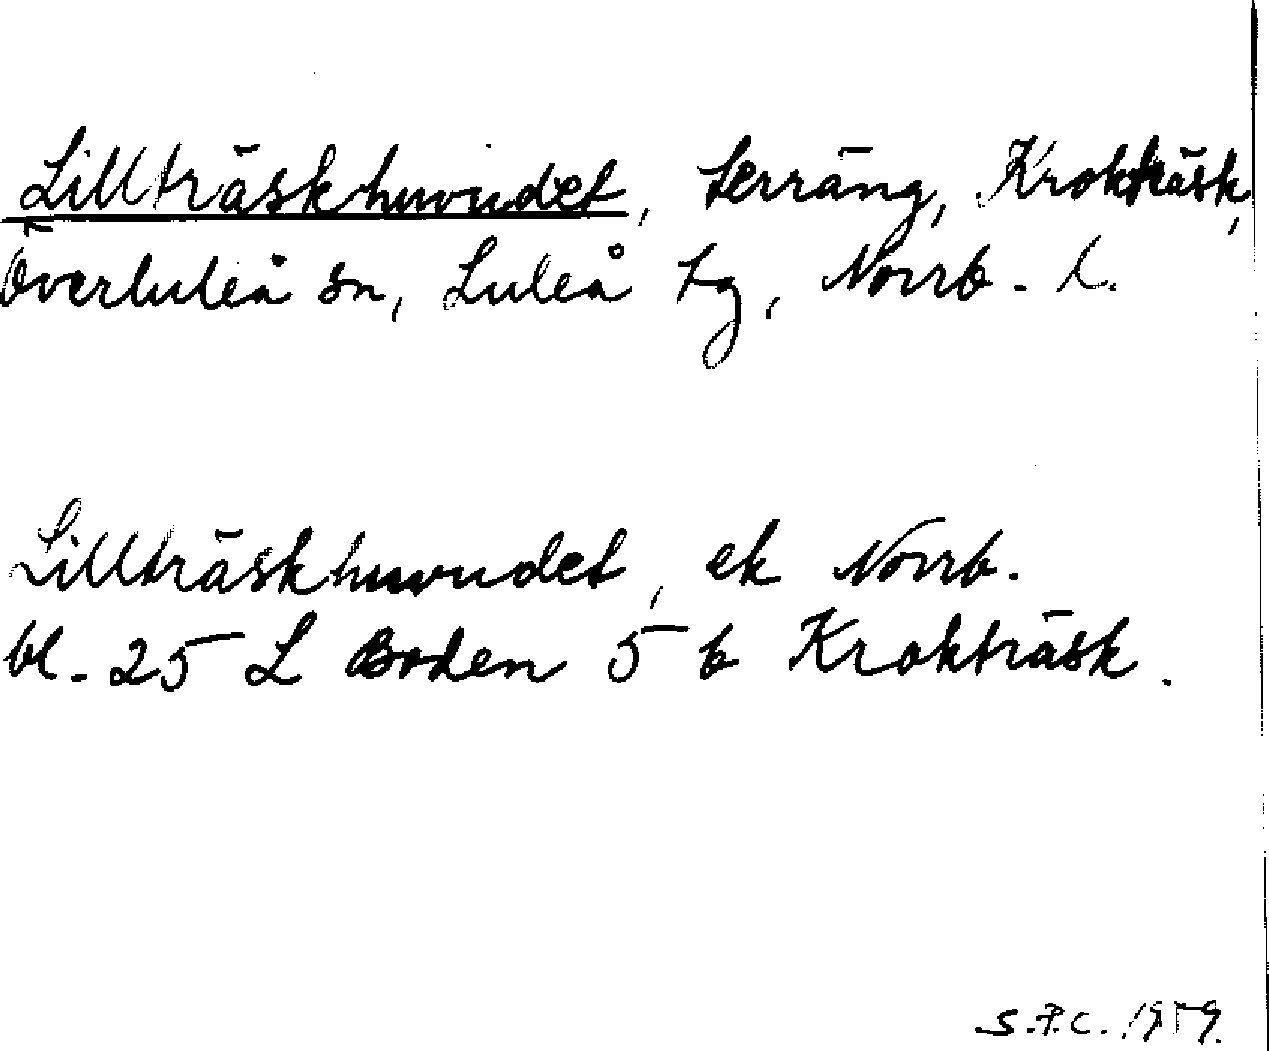 Lillträskhuvudet, terräng, Krokträsk,
Överluleå sn, Luleå tg, Norrb. l.
Lillträskhuvudet, ek Norrb.
bl. 25 L Boden 5 b Krokträsk.
S.P.C. 1959.